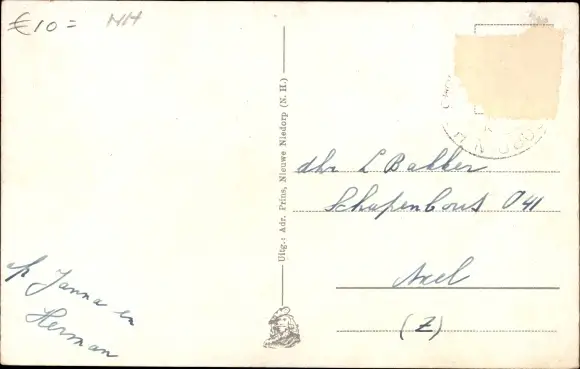 €10= NH
Uitg.: Adr. Prins, Nieuwe Niedorp (N. H.)
dhr L Bakker
Schapenbout O 41
Axel
(Z)
afz Janna en
Herman